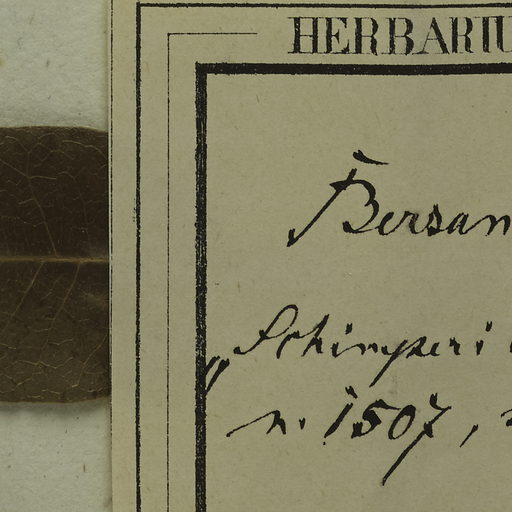 HERBARIU
Bersam
„Schimperi
n. 1507,